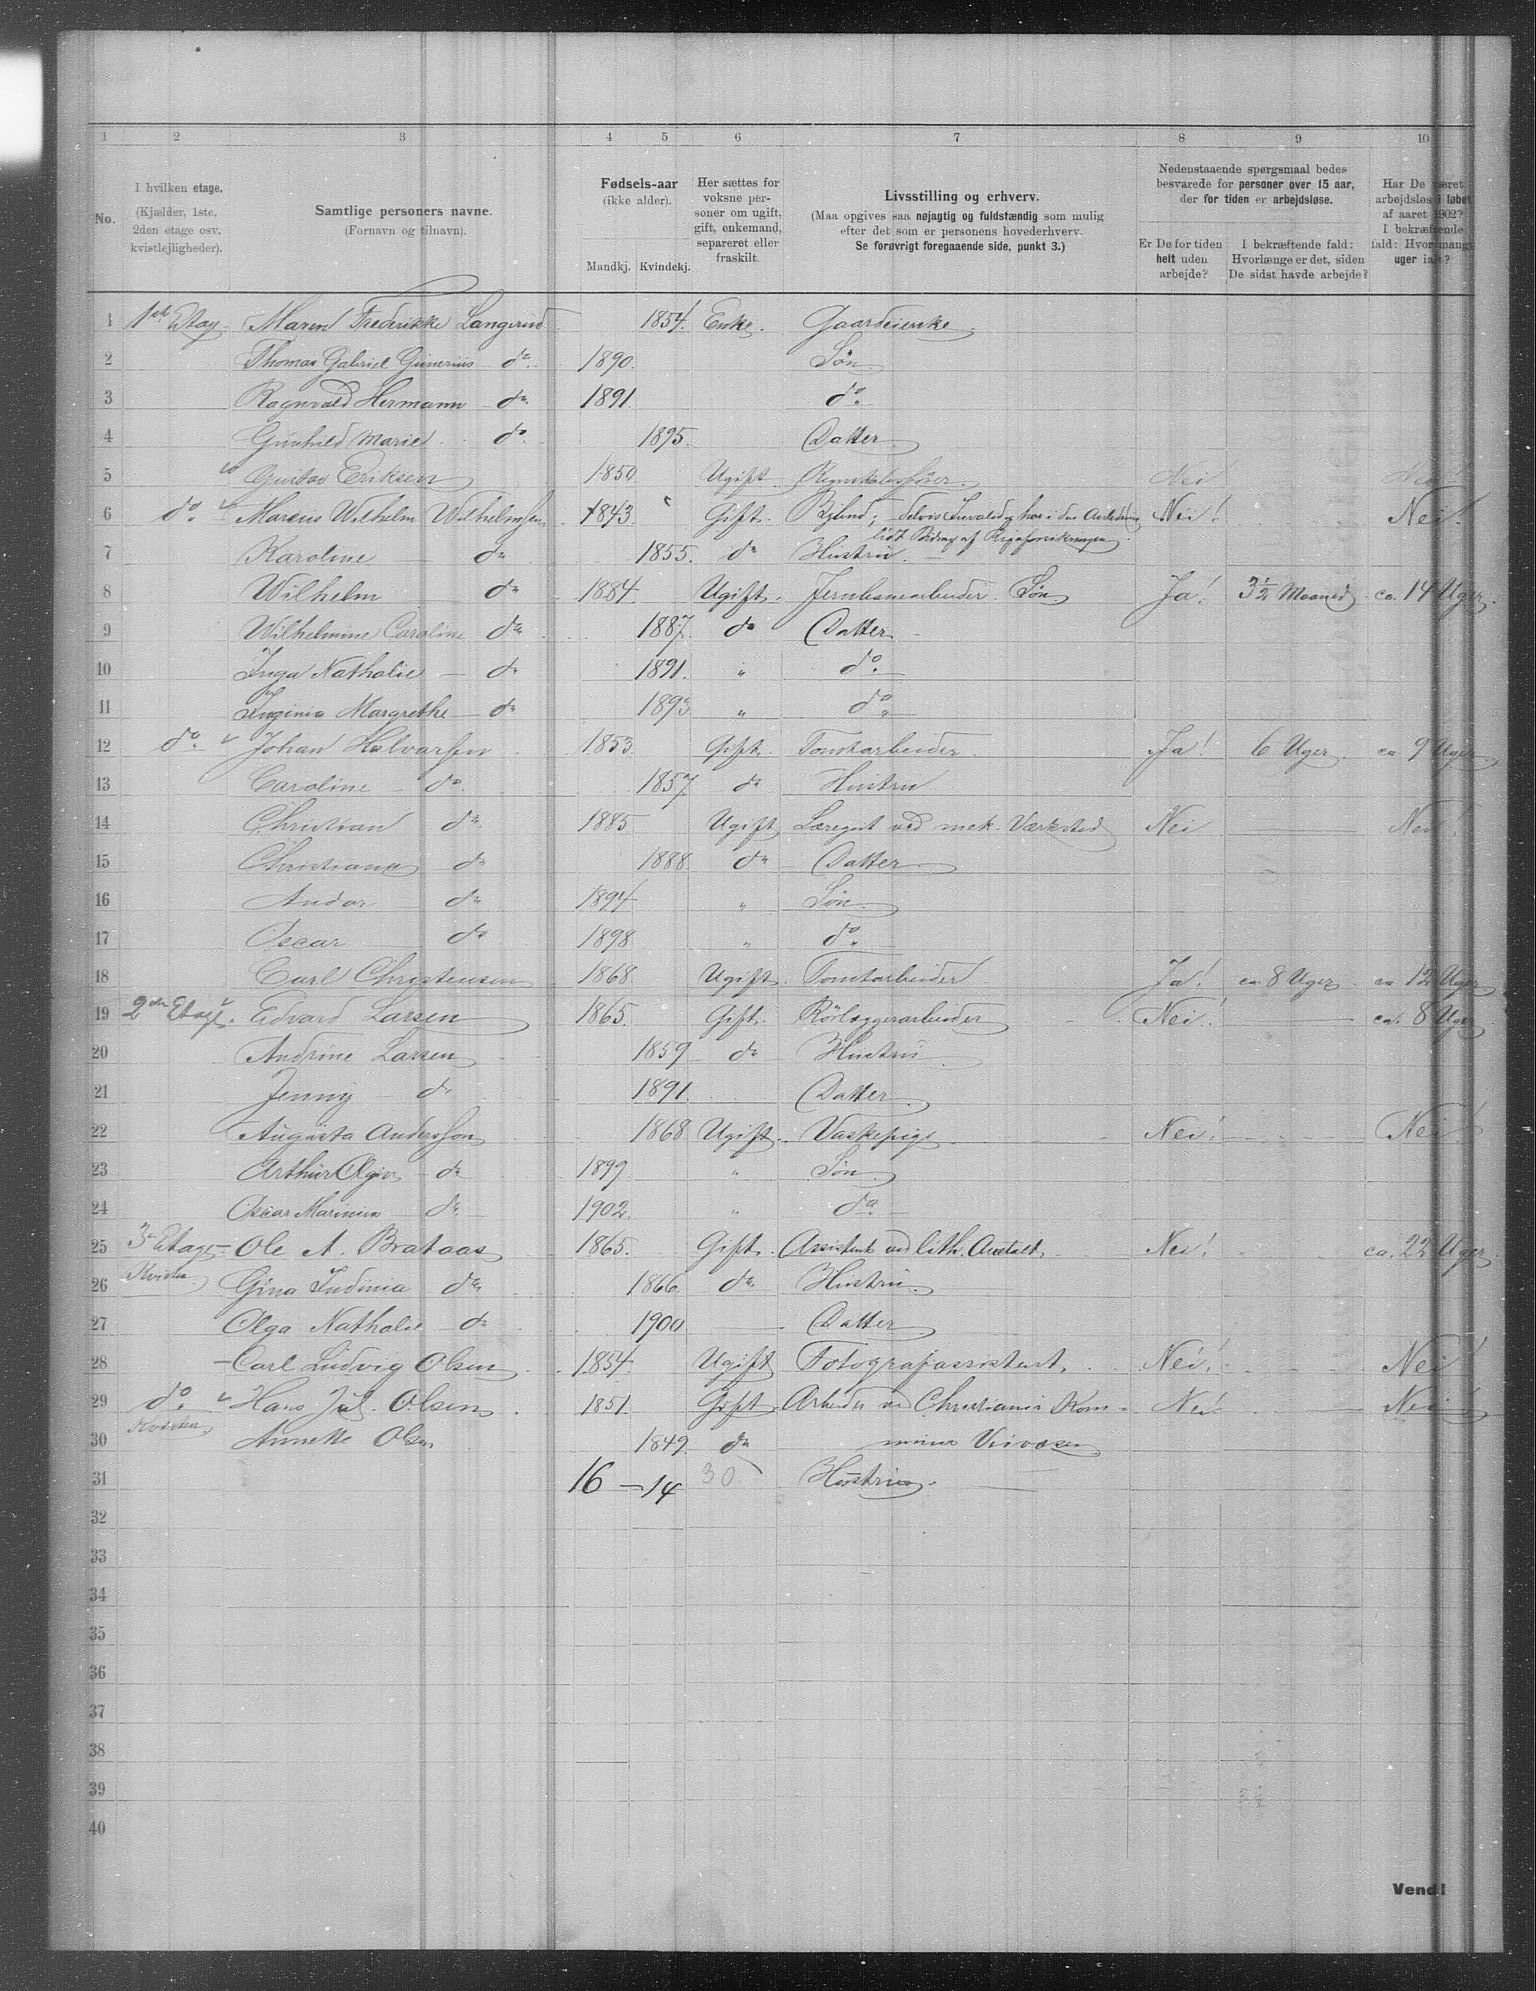 1 2 3 4 5 6 7 8 9 10
No.
I hvilken etage.
(Kjælder, 1ste,
2den etage osv.
kvistlejligheder).
Samtlige personers navne.
(Fornavn og tilnavn).
Fødsels-aar
(ikke alder).
Mandkj. Kvindekj.
Her sættes for
voksne per-
soner om ugift,
gift, enkemand,
separeret eller
fraskilt.
Livsstilling og erhverv.
(Maa opgives saa nøjagtig og fuldstændig som mulig
efter det som er personens hovederhverv.
Se forøvrigt foregaaende side, punkt 3.)
Nedenstaaende spørgsmaal bedes
besvarede for personer over 15 aar,
der for tiden er arbejdsløse.
Er De for tiden
helt uden
arbejde?
I bekræftende fald:
Hvorlænge er det, siden
De sidst havde arbejde?
Har De været
arbejdsløs i løbet
af aaret 1902?
I bekræftende
fald: Hvor mange
uger ialt?
1 1ste Etag. Maren Frederikke Langerud 1854. Enke. Gaardeierske.
2 Thomas Gabriel Gunerius do. 1890. Søn
3 Ragnvald Hermann do. 1891 do.
4 Gunhild Marie do. 1895. Datter
5 Gustav Eriksen 1850. Ugift Regnskabsfører. Nei Nei
6 do. Marius Wilhelm Wilhelmsen 1843 Gift. Blind; delvis Invalid, har i den Anledn. Nei! Nei.
lidt Bidrag af Rigsforsikringen.
7 Karoline do 1855. do Hustru.
8 Wilhelm do 1884 Ugift. Jernbanearbeider. Søn Ja! 3½ Maaned ca. 14 Uger.
9 Wilhelmine Caroline do 1887. do Datter
10 Inga Nathalie do 1891. " do.
11 Inginia Margrethe do 1893 " do.
12 do. Johan Halvorsen 1853. Gift. Tomtarbeider Ja! 6 Uger. ca. 9 Uger.
13 Caroline do. 1857 do Hustru
14 Christian do. 1885 Ugift Læregut ved mek. Værksted Nei Nei!
15 Christiana do 1888. do Datter
16 Andor do. 1894 " Søn.
17 Oscar do 1898 " do.
18 Carl Christensen 1868. Ugift. Tomtarbeider Ja! ca 8 Uger ca 12 Uger
19 2den Etage. Edvard Larsen 1865. Gift. Rørlæggerarbeider Nei! ca. 8 Uger
20 Andrine Larsen 1859 do Hustru
21 Jenny do 1891. Datter.
22 Augusta Andersson 1868 Ugift. Vaskepige Nei! Nei!
23 Arthur do 1899 " Søn.
24 Oscar Marinius do. 1902. " do.
25 3 Etage Ole A. Brataas 1865. Gift. Assistent ved lith. Anstalt. Nei! ca. 22 Uger.
26 Kvisten Gina Indinia do. 1866. do. Hustru.
27 Olga Nathalie do 1900 Datter
28 Carl Ludvig Olsen 1854. Ugift Fotografassistent. Nei! Nei!
29 do. Hans Jul. Olsen 1851. Gift Arbeider ved Christiania Kom- Nei! Nei!
30 Kvisten Annette Olsen 1849. do munes Veivæsen
31 16 — 14 30 Hustru.
32
33
34
35
36
37
38
39
40
Vend!